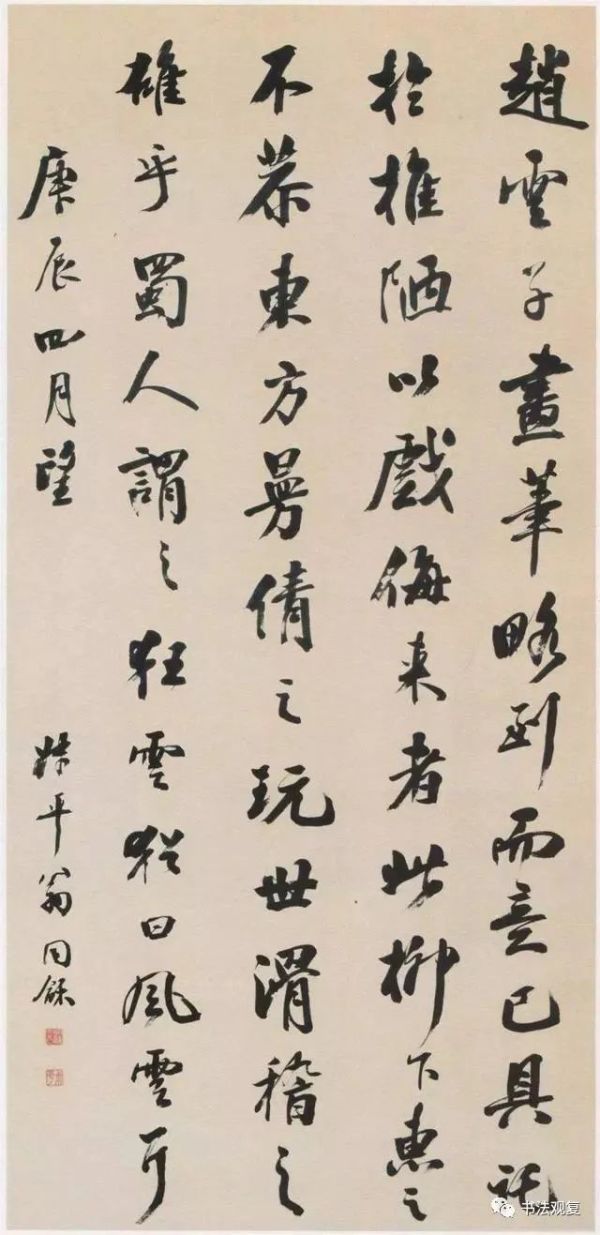 趙雲子畫筆略到而意已具託
於椎陋以戲侮来者此柳下惠之
不恭東方曼倩之玩世滑稽之
雄乎蜀人謂之狂雲猶曰風雲耳
庚辰四月望
叔平翁同龢
书法观复